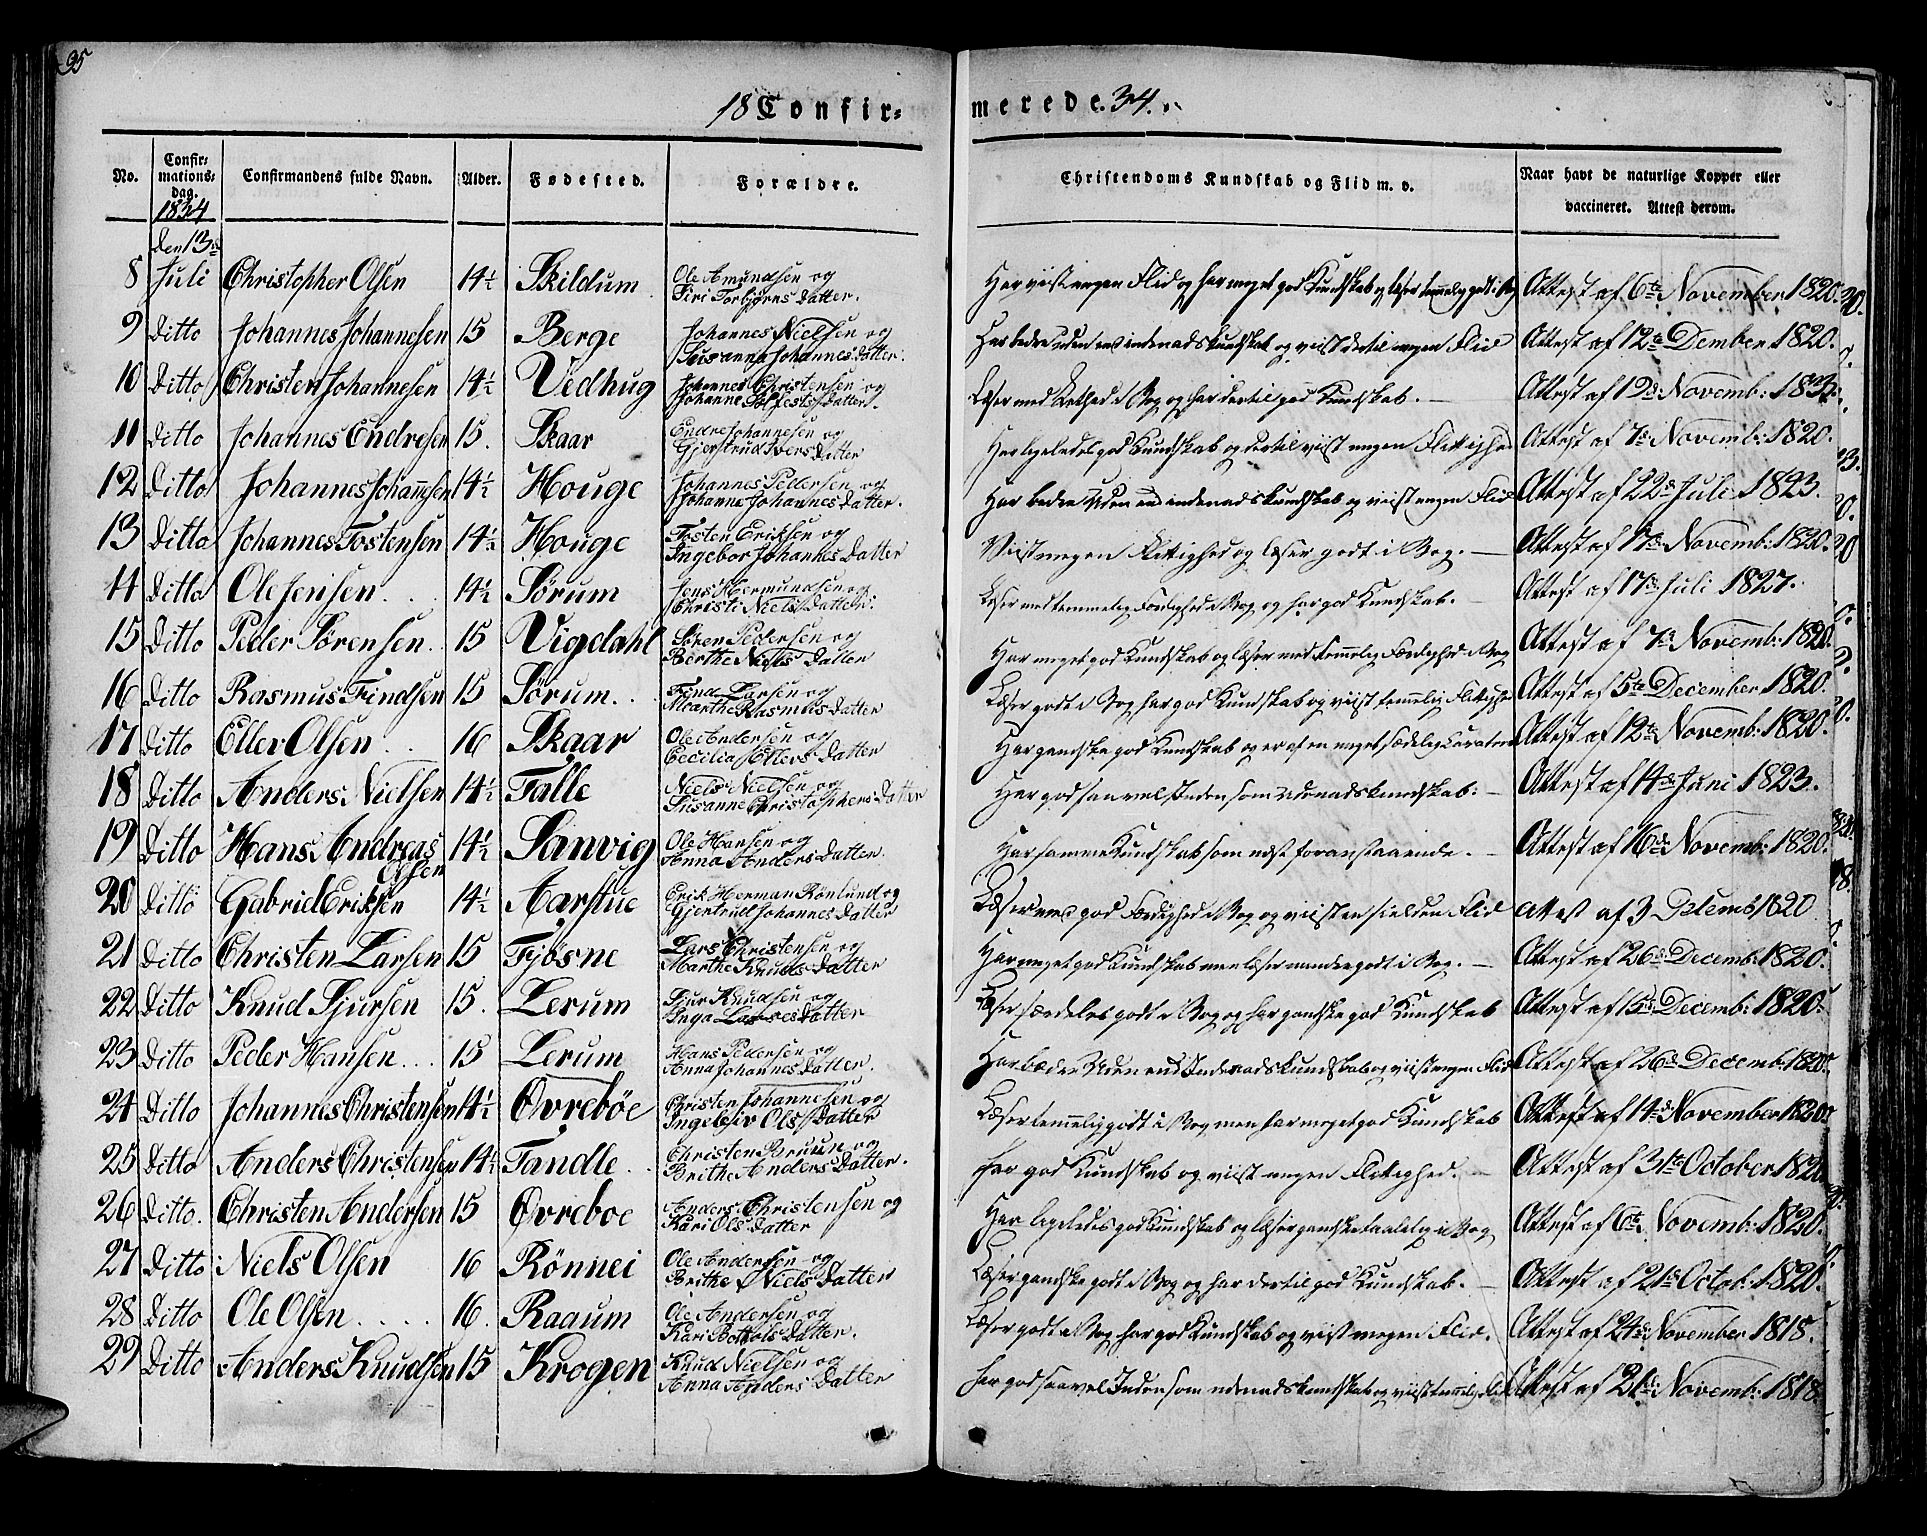 95
18 Confir-
merede. 34.
No.
Confir-
mations-
dag.
1834
Confirmandens fulde Navn.
Alder.
Fødested.
Forældre.
Christendoms Kundskab og Flid m. v.
Naar havt de naturlige Kopper eller
vaccineret. Attest derom.
Den 13de
8 Juli Christopher Olsen 14½ Skildum Ole Amundsen og
Siri Torbjørns Datter.
Har viist megen Flid og har meget god Kundskab og læser temmelig godt i Bog Attest af 6te November 1820.
9 Ditto Johannes Johannesen 15 Berge Johannes Nielsen og
Susanna Johannes Datter.
Har bedre uden end indenads Kundskab og viist dertil megen Flid Attest af 12te Dember 1820.
10 Ditto Christen Johannesen 14½ Vedhug Johannes Christensen og
Johanne Solfests Datter.
Læser med Rethed i Bog og har dertil god Kundskab. Attest af 19de Novemb: 1823.
11 Ditto Johannes Endresen 15. Skaar Endre Johannesen og
Gjertrud Ivers Datter
Har ligeledes god Kundskab og dertil viist megen Flittighed Attest af 7de Novemb: 1820.
12 Ditto Johannes Johannesen 14½ Houge Johannes Pedersen og
Johanne Johannes Datter.
Har bedre Uden end indenads Kundskab og viist megen Flid Attest af 22de Juli 1823.
13 Ditto Johannes Tostensen 14½ Houge Tosten Eriksen og
Ingebor Johannes Datter
Viist megen Flittighed og læser godt i Bog. Attest af 17de Novemb: 1820.
14 Ditto Ole Jensen 14½ Sørum Jens Hermundsen og
Christi Niels Datter.
Læser med temmelig Færdighed i Bog og har god Kundskab. Attest af 17de Juli 1827.
15 Ditto Peder Sørensen 15 Vigdahl Søren Pedersen og
Berthe Niels Datter
Har meget god Kundskab og læser med temmelig Færdighed i Bog Attest af 7de Novemb: 1820.
16 Ditto Rasmus Findsen 15 Sørum Find Larsen og
Marthe Rasmus Datter
Læser godt i Bog, har god Kundskab og viist temmelig Flittighed Attest af 5te December 1820.
17 Ditto Eller Olsen 16 Skaar Ole Andersen og
Cecilia Ellers Datter
Har ganske god Kundskab og er af en meget sædelig Caracteer Attest af 12te Novemb: 1820.
18 Ditto Anders Nielsen 14½ Talle Niels Nielsen og
Susanne Christophers Datter
Har god saavel Inden som Udenads Kundskab: Attest af 14de Juni 1823.
19 Ditto Hans Andreas
Olsen 14½ Sanvig Ole Hansen og
Anna Anders Datter.
Har samme Kundskab som næst foranstaaende. Attest af 16de Novemb: 1820.
20 Ditto Gabriel Eriksen 14½ Aarstue Erik Herman Rönlund og
Gjertrud Johannes Datter
Læser med god Færdighed i Bog og viist en sielden Flid attest af 3 1820
21 Ditto Christen Larsen 15 Fjøsne Lars Christensen og
Marthe Knuds Datter
Har meget god Kundskab men læser mindre godt i Bog. Attest af 26de Decemb: 1820.
22 Ditto Knud Sjursen 15. Lerum Sjur Knudsen og
Inga Lasses Datter
Læser særdeles godt i Bog og har ganske god Kundskab Attest af 15de Decemb: 1820.
23 Ditto Peder Hansen 15 Lerum Hans Pedersen og
Anna Johannes Datter.
Har bedre Uden end Indenads Kundskab og viist megen Flid Attest af 26de Decemb: 1820.
24 Ditto Johannes Christensen 14½ Øvrebøe Christen Johannesen og
Ingebør Ols Datter
Læser temmelig godt i Bog men har meget god Kundskab Attest af 14de November 1820.
25 Ditto Anders Christensen 14½ Tandle Christen Bruun og
Brithe Anders Datter.
Har god Kundskab og viist megen Flittighed. Attest af 31te October 1820
26 Ditto. Christen Andersen 15 Øvreboe Anders Christensen og
Kari Ols Datter
Har ligeledes god Kundskab og læser ganske taalelig i Bog Attest af 6te Novemb: 1820.
27 Ditto Niels Olsen 16 Rönnei Ole Andersen og
Brithe Niels Datter
Læser ganske godt i Bog og har dertil god Kundskab. Attest af 21de Octob: 1820.
28 Ditto Ole Olsen 16. Raaum Ole Andersen og
Kari Datter.
Læser godt i Bog, har god Kundskab og viist megen Flid. Attest af 24de November 1818.
29 Ditto Anders Knudsen 15 Krogen Knud Nielsen og
Anna Anders Datter
Har god saavel Inden som udenads Kundskab og viist temmelig Flid Attest af 21de Novemb: 1818.